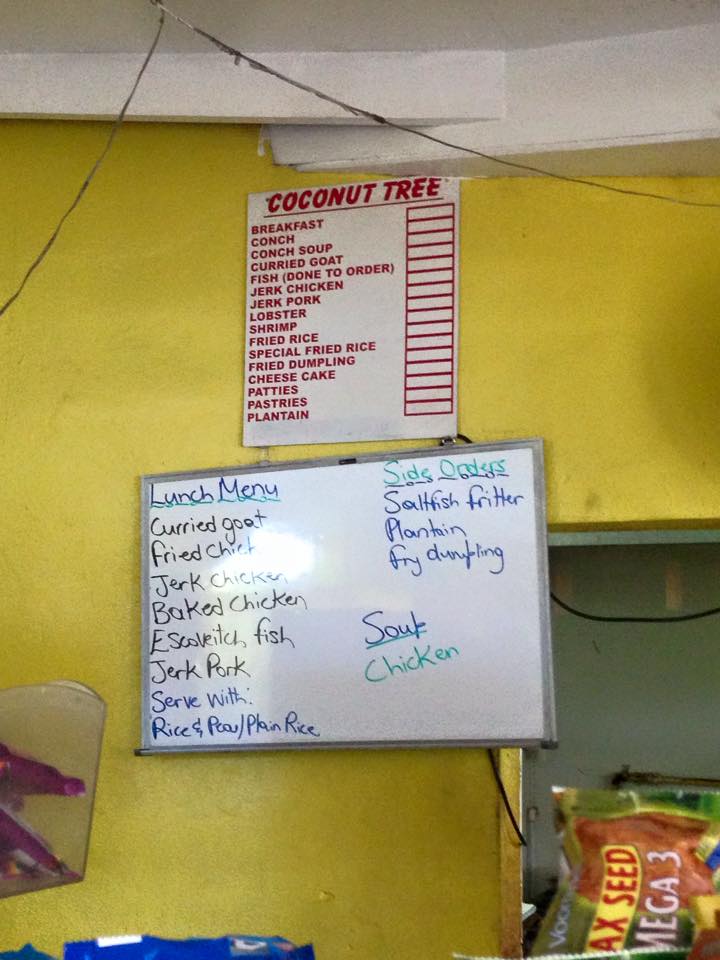 COCONUT TREE
BREAKFAST
CONCH
CONCH SOUP
CURRIED GOAT
FISH (DONE TO ORDER)
JERK CHICKEN
JERK PORK
LOBSTER
SHRIMP
FRIED RICE
SPECIAL FRIED RICE
FRIED DUMPLING
CHEESE CAKE
PATTIES
PASTRIES
PLANTAIN
Lunch Menu
Curried goat
Fried Chick
Jerk Chicken
Baked Chicken
Escoveitch fish
Jerk Pork
Serve with:
Rice & Peas/Plain Rice
Side Orders
Saltfish fritter
Plantain
fry dumpling
Soup
Chicken
AX SEED
MEGA 3